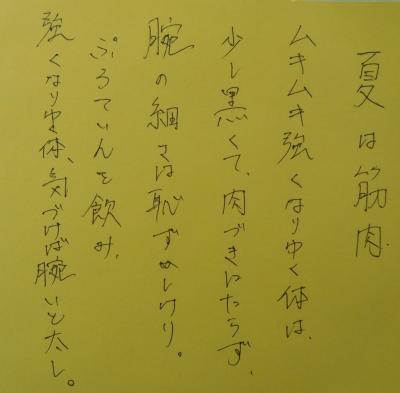 夏は筋肉
ムキムキ強くなりゆく体は、
少し黒くて、肉づきにたらず、
腕の細さは恥ずかしけり。
ぷろていんを飲み、
強くなりゆく体、気づけば腕いと太し。